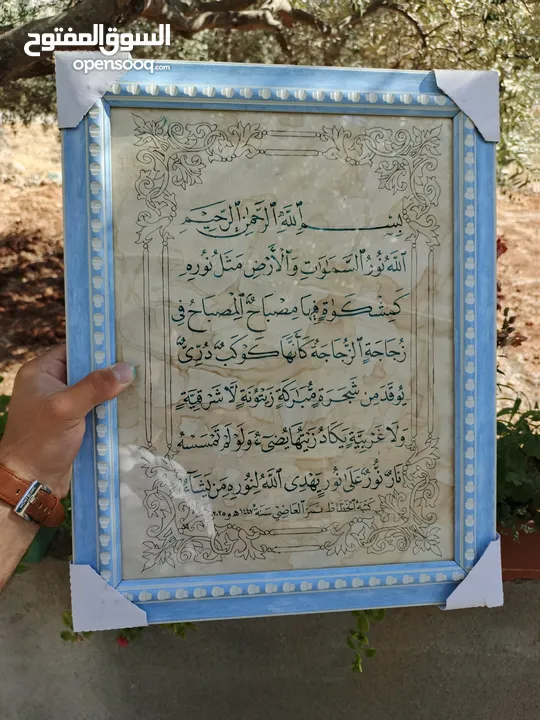 السوق المفتوح
opensooq.com
بسم الله الرحمن الرحيم
اللَّهُ نُورُ السَّمَاوَاتِ وَالْأَرْضِ مَثَلُ نُورِهِ
كَمِشْكَوٰةٍ فِيهَا مِصْبَاحٌ الْمِصْبَاحُ فِي
زُجَاجَةٍ الزُّجَاجَةُ كَأَنَّهَا كَوْكَبٌ دُرِّيٌّ
يُوقَدُ مِن شَجَرَةٍ مُّبَارَكَةٍ زَيْتُونَةٍ لَّا شَرْقِيَّةٍ
وَلَا غَرْبِيَّةٍ يَكَادُ زَيْتُهَا يُضِيءُ وَلَوْ لَمْ تَمْسَسْهُ
نَارٌ نُّورٌ عَلَىٰ نُورٍ يَهْدِي اللَّهُ لِنُورِهِ مَن يَشَاءُ
كتبه الخطاط نمر القاضي سنة ١٤٤٦هـ و ٢٠٢٥م